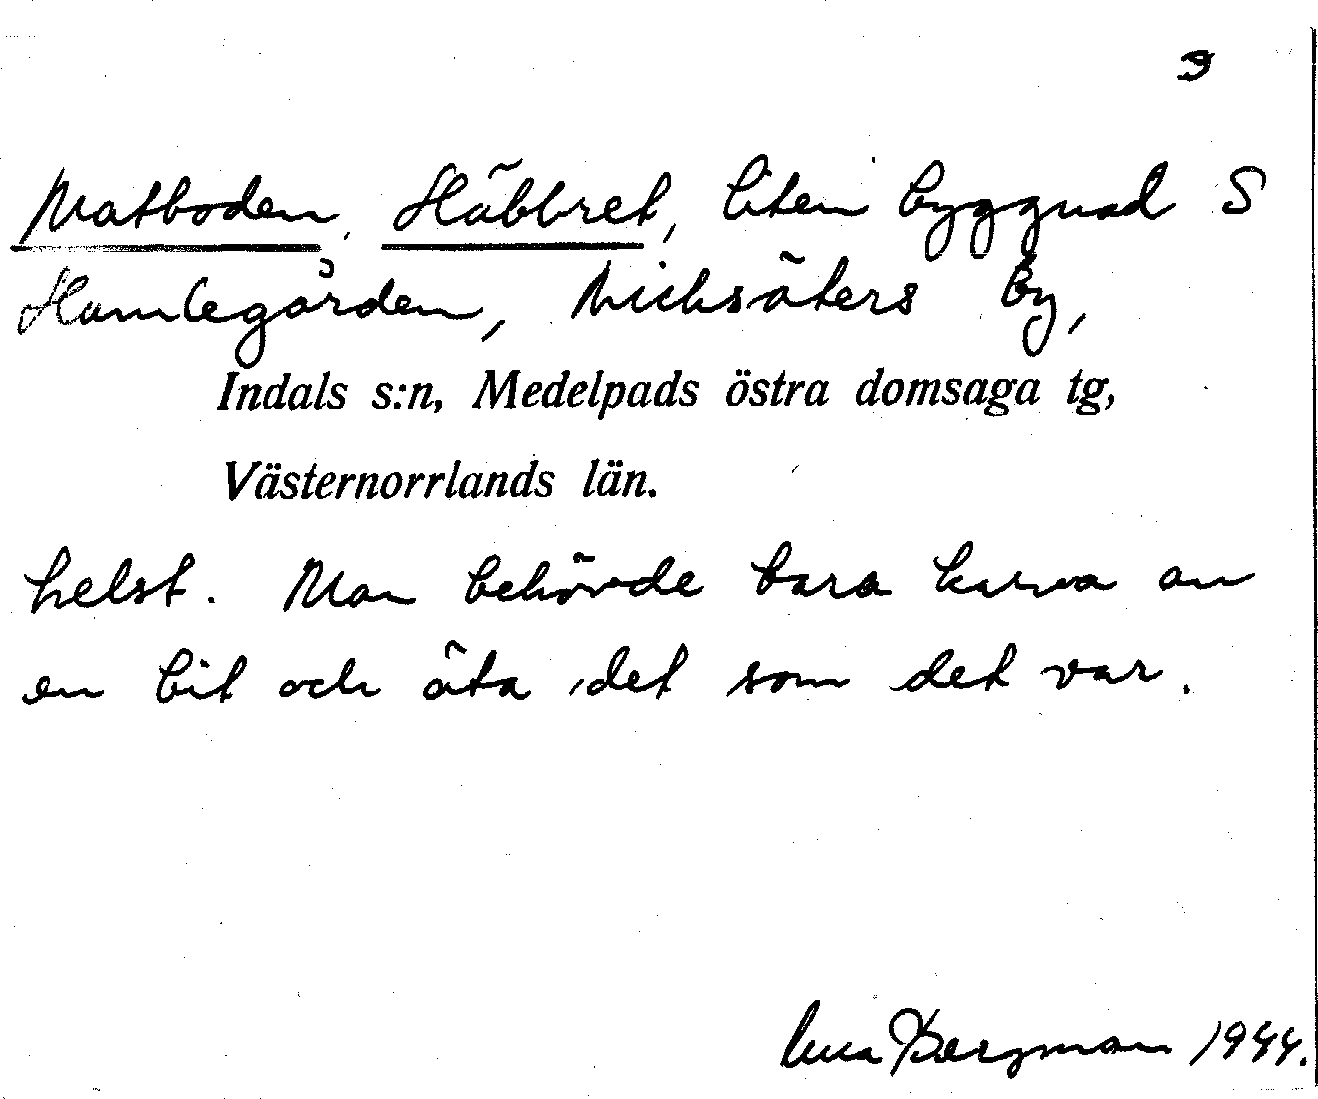 3
Matboden, Häbbret, liten byggnad S
Hamlegården, Nicksäters by,
Indals s:n, Medelpads östra domsaga tg,
Västernorrlands län.
helst. Man behövde bara karva an
en bit och äta det som det var.
Bergman 1944.